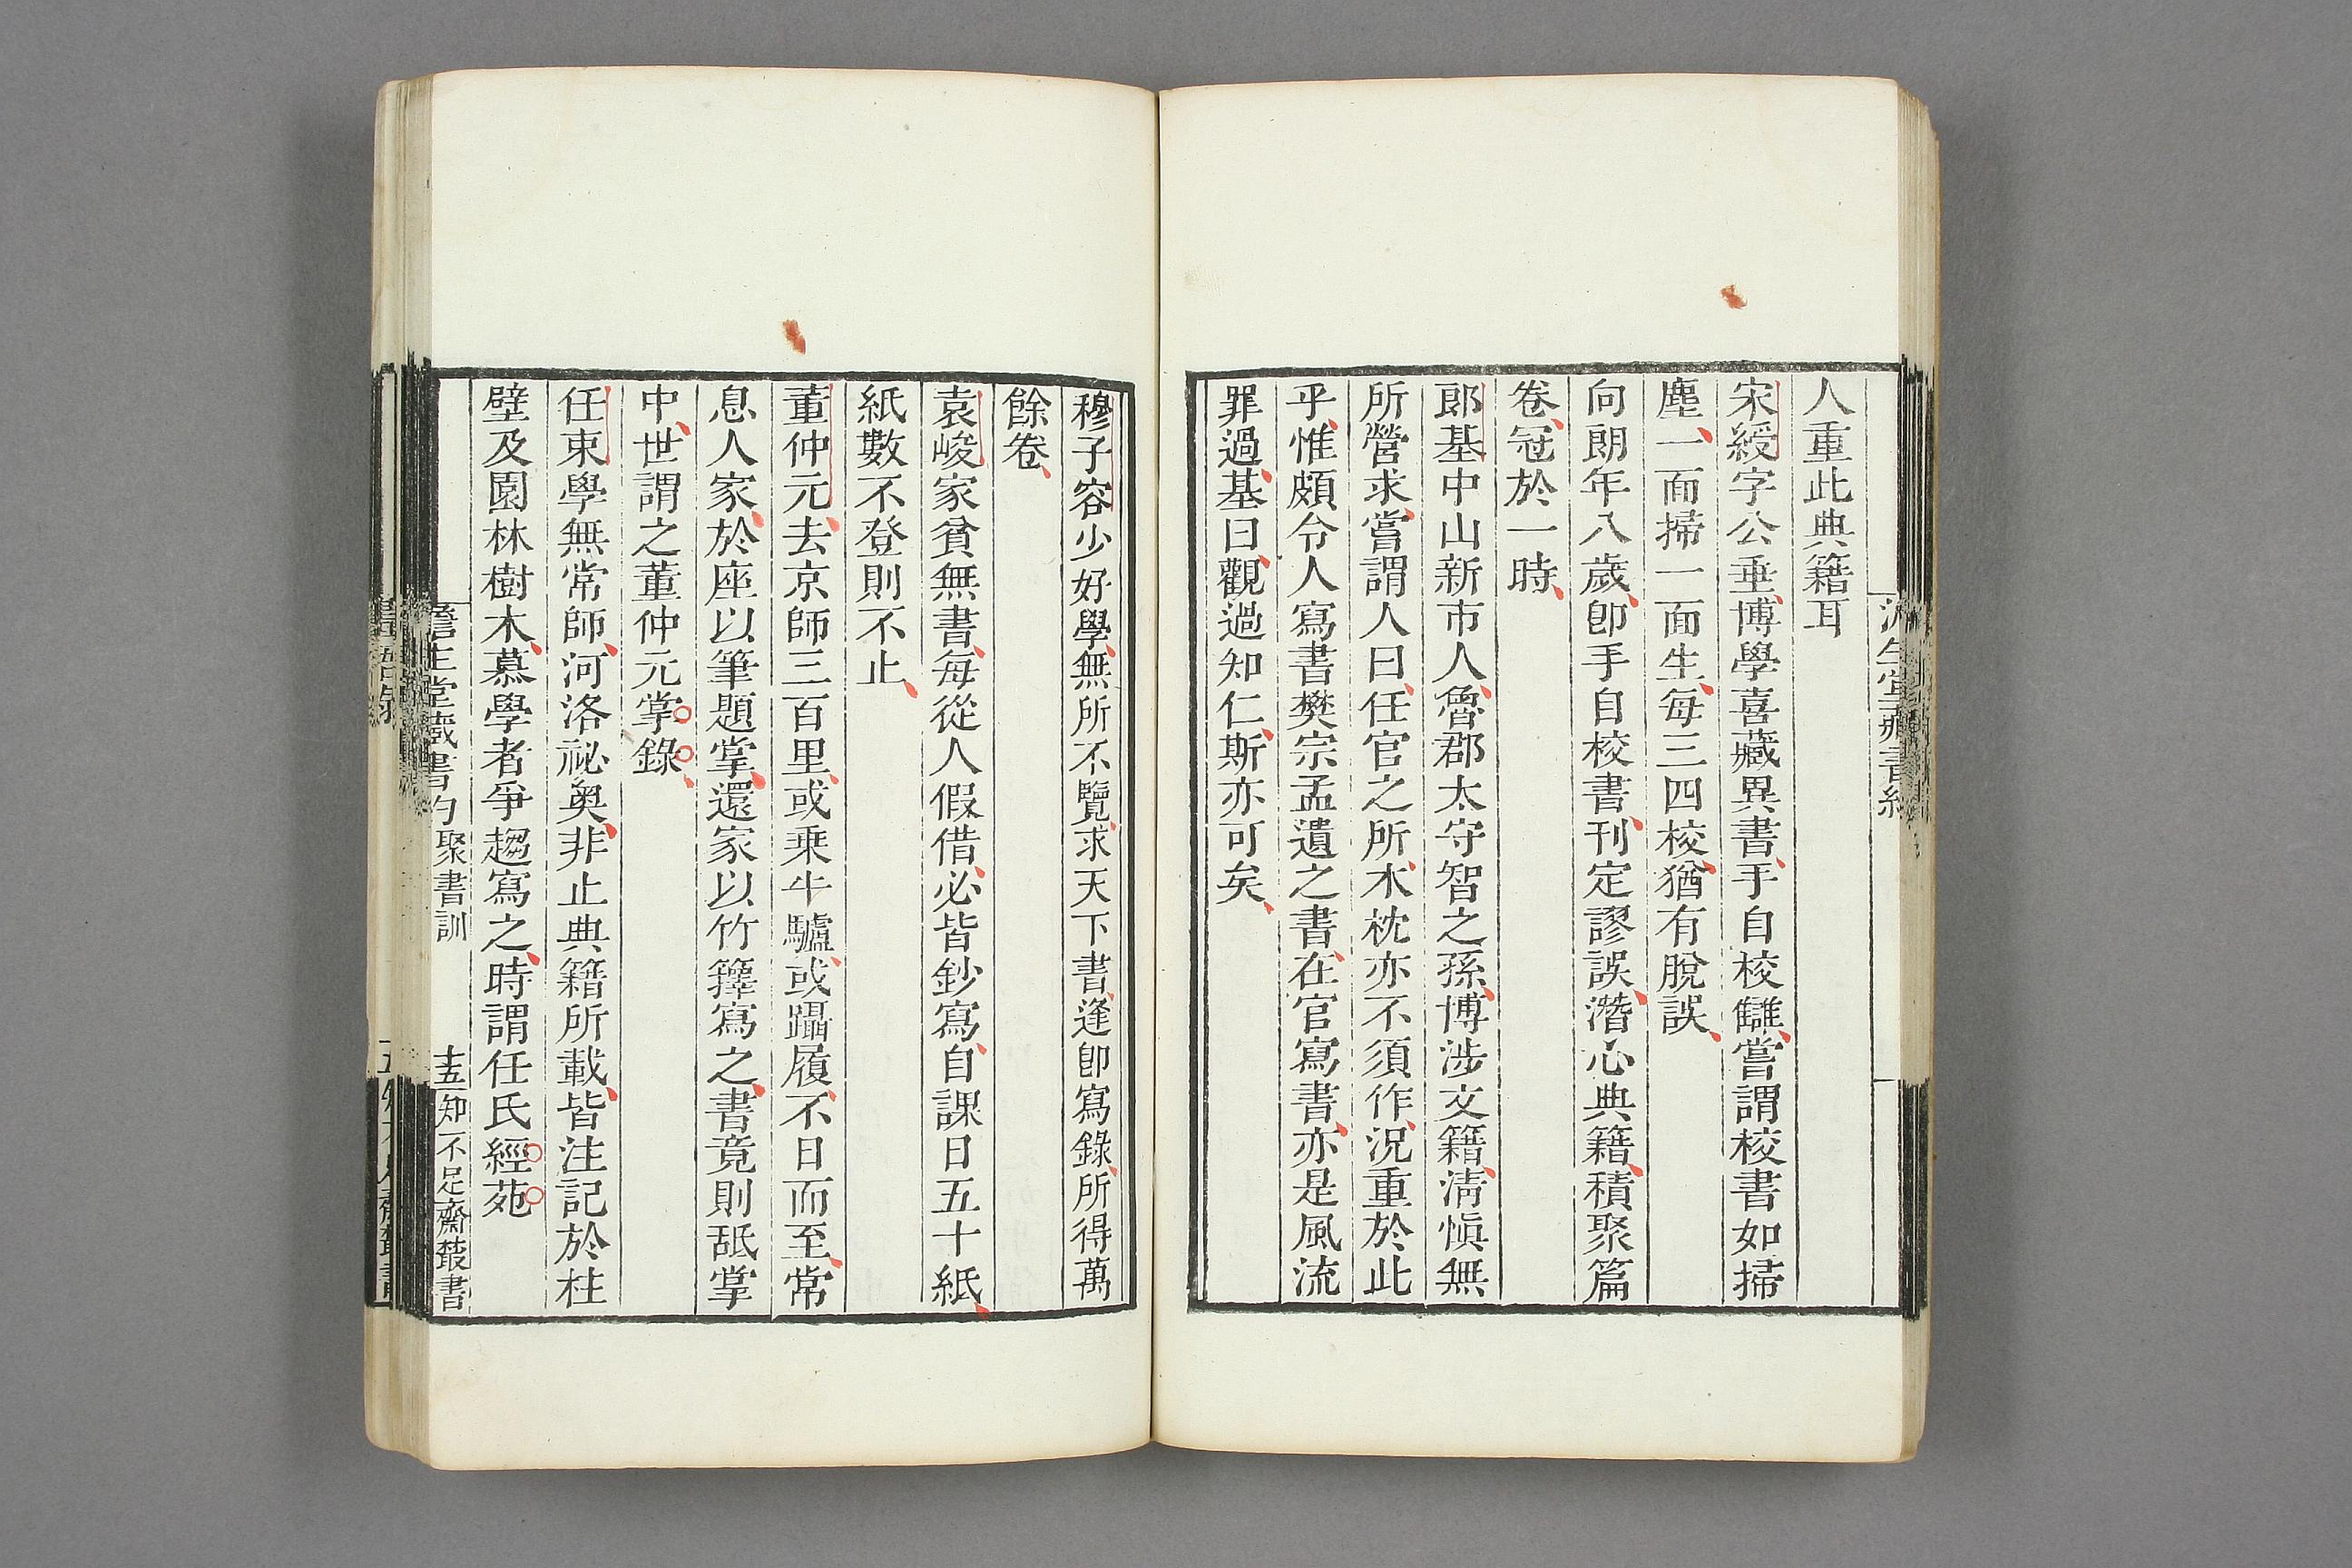 人重此典籍耳
宋綬字公垂博學喜藏異書手自校讎嘗謂校書如掃
塵一面掃一面生每三四校猶有脫誤
向朗年八歲卽手自校書刊定謬誤潛心典籍積聚篇
卷冠於一時
郎基中山新市人魯郡太守智之孫博涉文籍淸愼無
所營求嘗謂人曰任官之所木枕亦不須作況重於此
乎惟頗令人寫書樊宗孟遺之書在官寫書亦是風流
罪過基曰觀過知仁斯亦可矣
穆子容少好學無所不覽求天下書逢卽寫錄所得萬
餘卷
袁峻家貧無書每從人假借必皆鈔寫自課日五十紙
紙數不登則不止
董仲元去京師三百里或乘牛驢或躡履不日而至常
息人家於座以筆題掌還家以竹籜寫之書竟則舐掌
中世謂之董仲元掌錄
任東學無常師河洛祕奧非止典籍所載皆注記於柱
壁及園林樹木慕學者爭趨寫之時謂任氏經苑
生堂藏書約 聚書訓 十五 知不足齋叢書